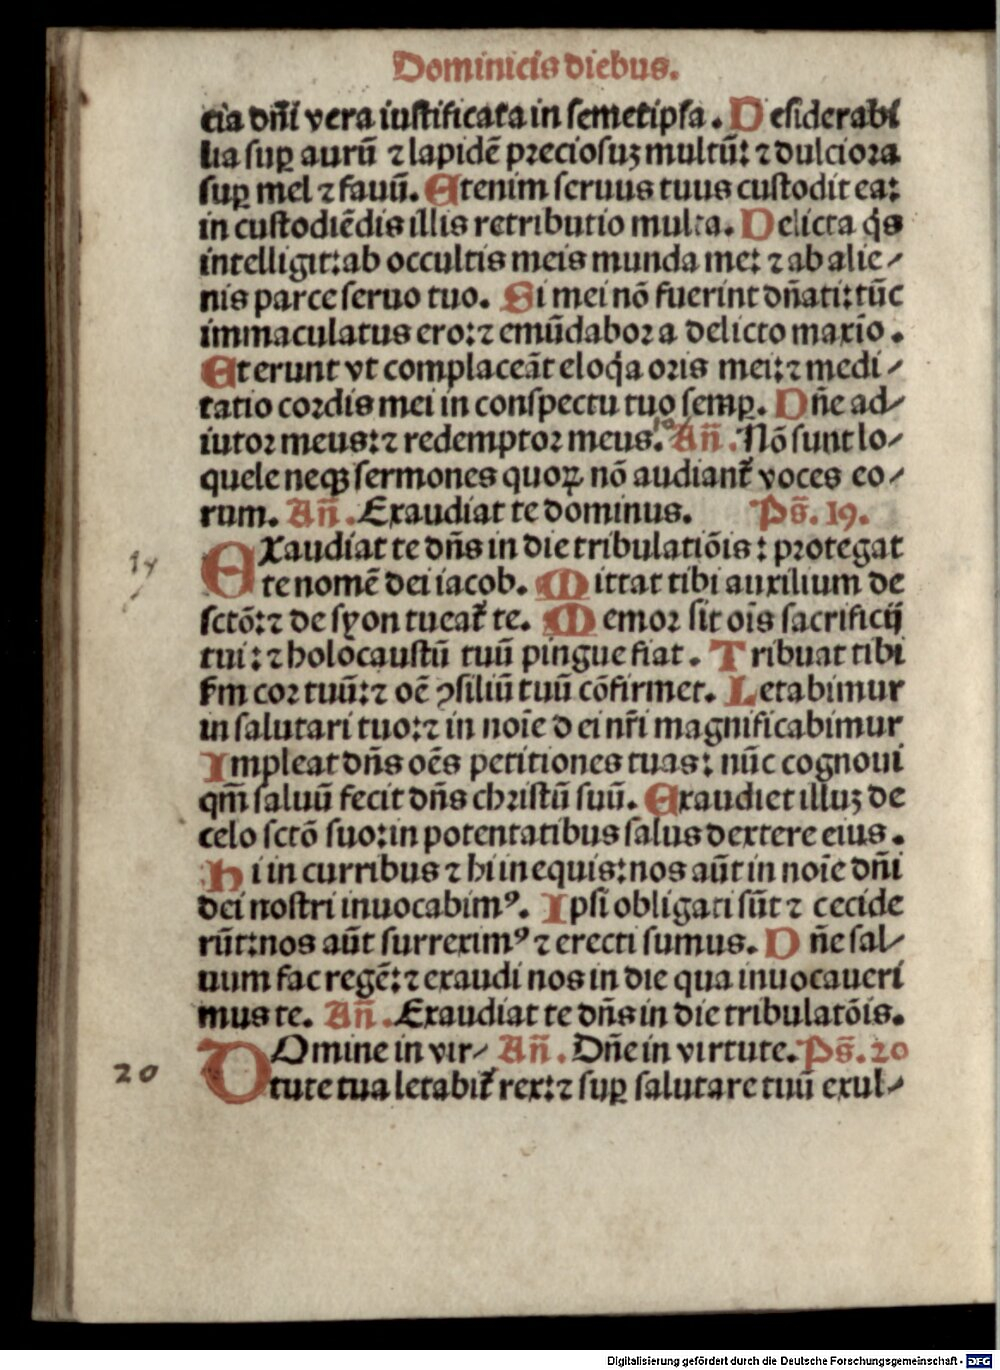 Dominicis diebus.
cia dñi vera iustificata in semetipsa. Desiderabi
lia suꝑ aurū ⁊ lapidē preciosuꝫ multū: ⁊ dulciora
suꝑ mel ⁊ fauū. Etenim seruus tuus custodit ea:
in custodiēdis illis retributio multa. Delicta q̇s
intelligit: ab occultis meis munda me: ⁊ ab alie-
nis parce seruo tuo. Si mei nō fuerint dñati: tūc
immaculatus ero: ⁊ emūdabor a delicto maxīo.
Et erunt vt complaceāt eloq̇a oris mei: ⁊ medi-
tatio cordis mei in conspectu tuo semꝑ. Dñe ad-
iutor meus: ⁊ redemptor meus. Añ. Nō sunt lo-
quele neqꝫ sermones quoꝝ nō audiant᷑ voces eo-
rum. Añ. Exaudiat te dominus. Ps̄. 19.
Exaudiat te dñs in die tribulatiōis: protegat
te nomē dei iacob. Mittat tibi auxilium de
sctō: ⁊ de syon tueat᷑ te. Memor sit oīs sacrificij
tui: ⁊ holocaustū tuū pingue fiat. Tribuat tibi
s̄m cor tuū: ⁊ oē ꝯsiliū tuū cōfirmet. Letabimur
in salutari tuo: ⁊ in noīe dei nr̄i magnificabimur
Impleat dñs oēs petitiones tuas: nūc cognoui
qm̄ saluū fecit dñs christū suū. Exaudiet illuꝫ de
celo sctō suo: in potentatibus salus dextere eius.
Hi in curribus ⁊ hi in equis: nos aūt in noīe dñi
dei nostri inuocabimꝰ. Ipsi obligati sūt ⁊ cecide
rūt: nos aūt surreximꝰ ⁊ erecti sumus. Dñe sal-
uum fac regē: ⁊ exaudi nos in die qua inuocaueri
mus te. Añ. Exaudiat te dñs in die tribulatōis.
DOmine in vir- Añ. Dñe in virtute. Ps̄. 20
tute tua letabit᷑ rex: ⁊ suꝑ salutare tuū exul-
19
20
Digitalisierung gefördert durch die Deutsche Forschungsgemeinschaft - DFG